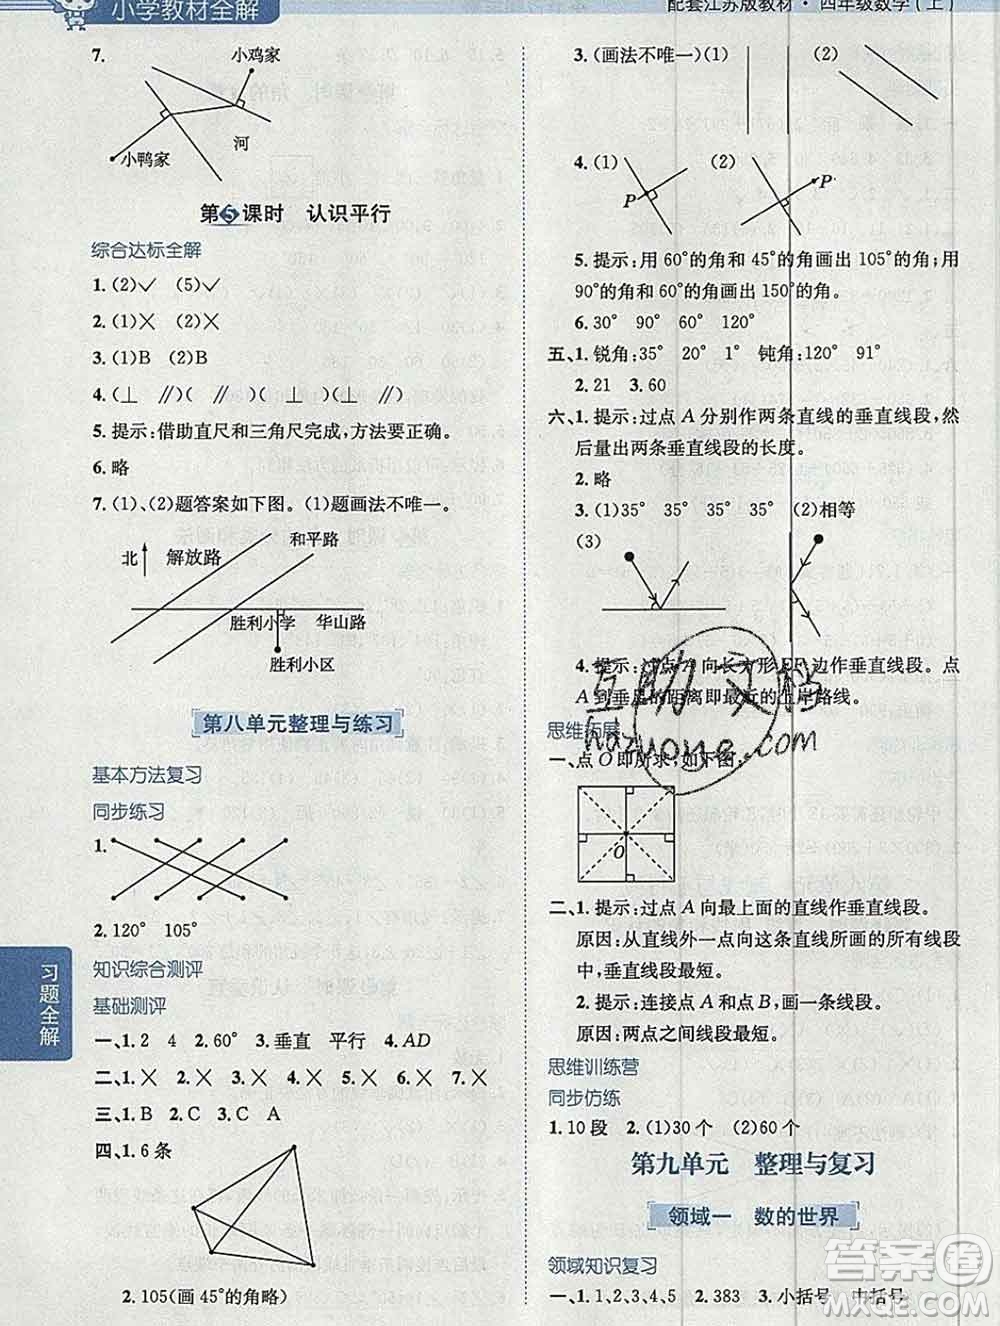 小学教材全解
配套江苏版教材·四年级数学(上)
7.
小鸡家
河
小鸭家
第5课时 认识平行
综合达标全解
1.(2)✓ (5)✓
2.(1)× (2)×
3.(1)B (2)B
4.(⊥ ∥)(∥ ⊥ ∥)
5.提示:借助直尺和三角尺完成,方法要正确。
6.略
7.(1)、(2)题答案如下图。(1)题画法不唯一。
北 解放路 和平路
胜利小学 华山路
胜利小区
第八单元整理与练习
基本方法复习
同步练习
1.
2.120° 105°
知识综合测评
基础测评
一、1.2 4 2.60° 3.垂直 平行 4.AD
二、1.× 2.× 3.× 4.× 5.×
三、1.B 2.C 3.C A
四、1.6条
2.105(画45°的角略)
习题全解
3.(画法不唯一)(1) (2)
4.(1) (2)
P P
5.提示:用60°的角和45°的角画出105°的角;用
90°的角和60°的角画出150°的角。
6.30° 90° 60° 120°
五、1.锐角:35° 20° 1° 钝角:120° 91°
2.21 3.60
六、1.提示:过点A分别作两条直线的垂直线段,然
后量出两条垂直线段的长度。
2.略
3.(1)35° 35° 35° 35° (2)相等
(3)
4.提示:过点A向长方形四边作垂直线段。点
A到垂足的距离即最近的上岸路线。
思维拓展
一、点O即所求,如下图:
O
二、1.提示:过点A向最上面的直线作垂直线段。
原因:从直线外一点向这条直线所画的所有线段
中,垂直线段最短。
2.提示:连接点A和点B,画一条线段。
原因:两点之间线段最短。
思维训练营
同步仿练
1.10段 2.(1)30个 (2)60个
第九单元 整理与复习
领域一 数的世界
领域知识复习
一、1.1,2,3,4,5 2.383 3.小括号 中括号
互助文档
hdzuone.com
作业帮答案
MXQE.COM